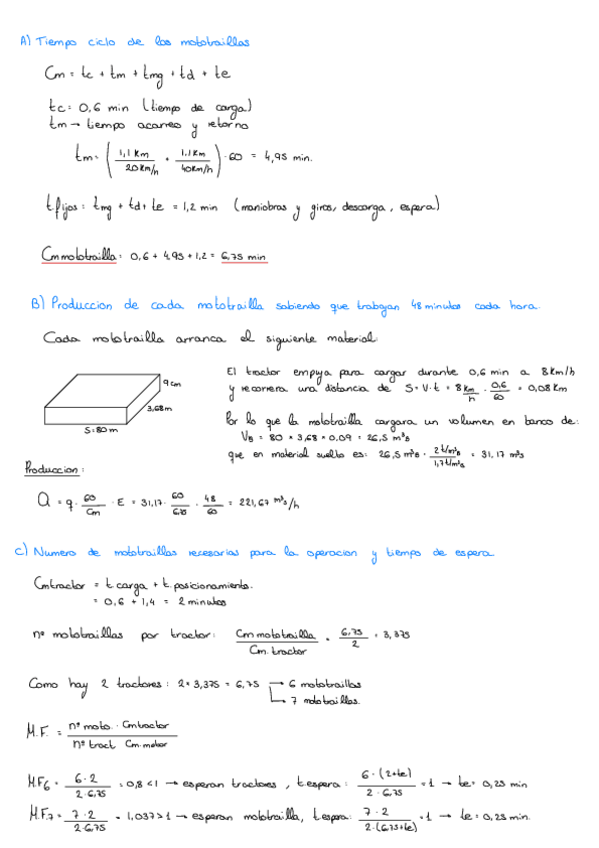 A) Tiempo ciclo de las mototraillas
Cm = tc + tm + tmg + td + te
tc = 0,6 min (tiempo de carga)
tm → tiempo acarreo y retorno
tm = ( 1,1 Km / 20 Km/h + 1.1 Km / 40 Km/h ) · 60 = 4,95 min.
t fijos = tmg + td + te = 1,2 min (maniobras y giros, descarga, espera)
Cm mototrailla = 0,6 + 4,95 + 1,2 = 6,75 min
B) Produccion de cada mototrailla sabiendo que trabajan 48 minutos cada hora.
Cada mototrailla arranca el siguiente material:
9 cm
3,68 m
S = 80 m
El tractor empuja para cargar durante 0,6 min a 8 Km/h
y recorrera una distancia de S = V · t = 8 Km/h · 0,6/60 = 0,08 Km
Por lo que la mototrailla cargara un volumen en banco de:
VB = 80 × 3,68 × 0.09 = 26,5 m³B
que en material suelto es: 26,5 m³B · 2 t/m³B / 1,7 t/m³s = 31,17 m³s
Produccion:
Q = q · 60/Cm · E = 31,17 · 60/6,75 · 48/60 = 221,67 m³s/h
C) Numero de mototraillas necesarias para la operacion y tiempo de espera
Cm tractor = t carga + t. posicionamiento.
= 0,6 + 1,4 = 2 minutos
nº mototraillas por tractor: Cm mototrailla / Cm. tractor = 6,75 / 2 = 3,375
Como hay 2 tractores: 2 × 3,375 = 6,75 → 6 mototraillas
→ 7 mototraillas.
M.F. = nº moto. · Cm tractor / nº tract Cm. motor
M.F6 = 6 · 2 / 2 · 6,75 = 0,8 < 1 → esperan tractores, t espera: 6 · (2+te) / 2 · 6,75 = 1 → te = 0,25 min
M.F.7 = 7 · 2 / 2 · 6,75 = 1,037 > 1 → esperan mototrailla, t espera: 7 · 2 / 2 · (6,75+te) = 1 → te = 0,25 min.